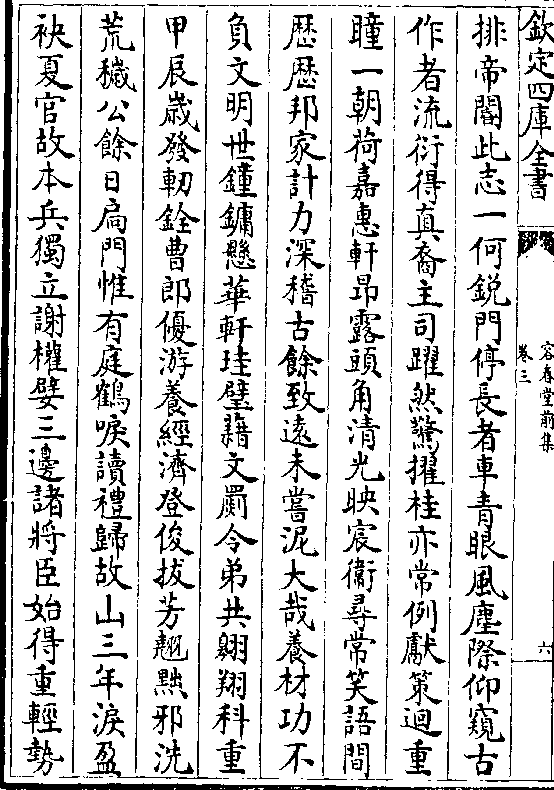 欽定四庫全書
容春堂前集
卷三
六
排帝閽此志一何鋭門停長者車青眼風塵際仰窺古
作者流衍得真裔主司躍然驚擢桂亦常例獻策迴重
瞳一朝荷嘉惠軒昂露頭角清光映宸衛尋常笑語間
歴歴邦家計力深稽古餘致遠未嘗泥大哉養材功不
負文明世鐘鏞懸華軒珪璧藉文罽令弟共翺翔科重
甲辰歳發軔銓曹郎優游養經濟登俊拔芳翹黜邪洗
荒穢公餘日扃門惟有庭鶴唳讀禮歸故山三年淚盈
袂夏官故本兵獨立謝權嬖三邊諸將臣始得重輕勢